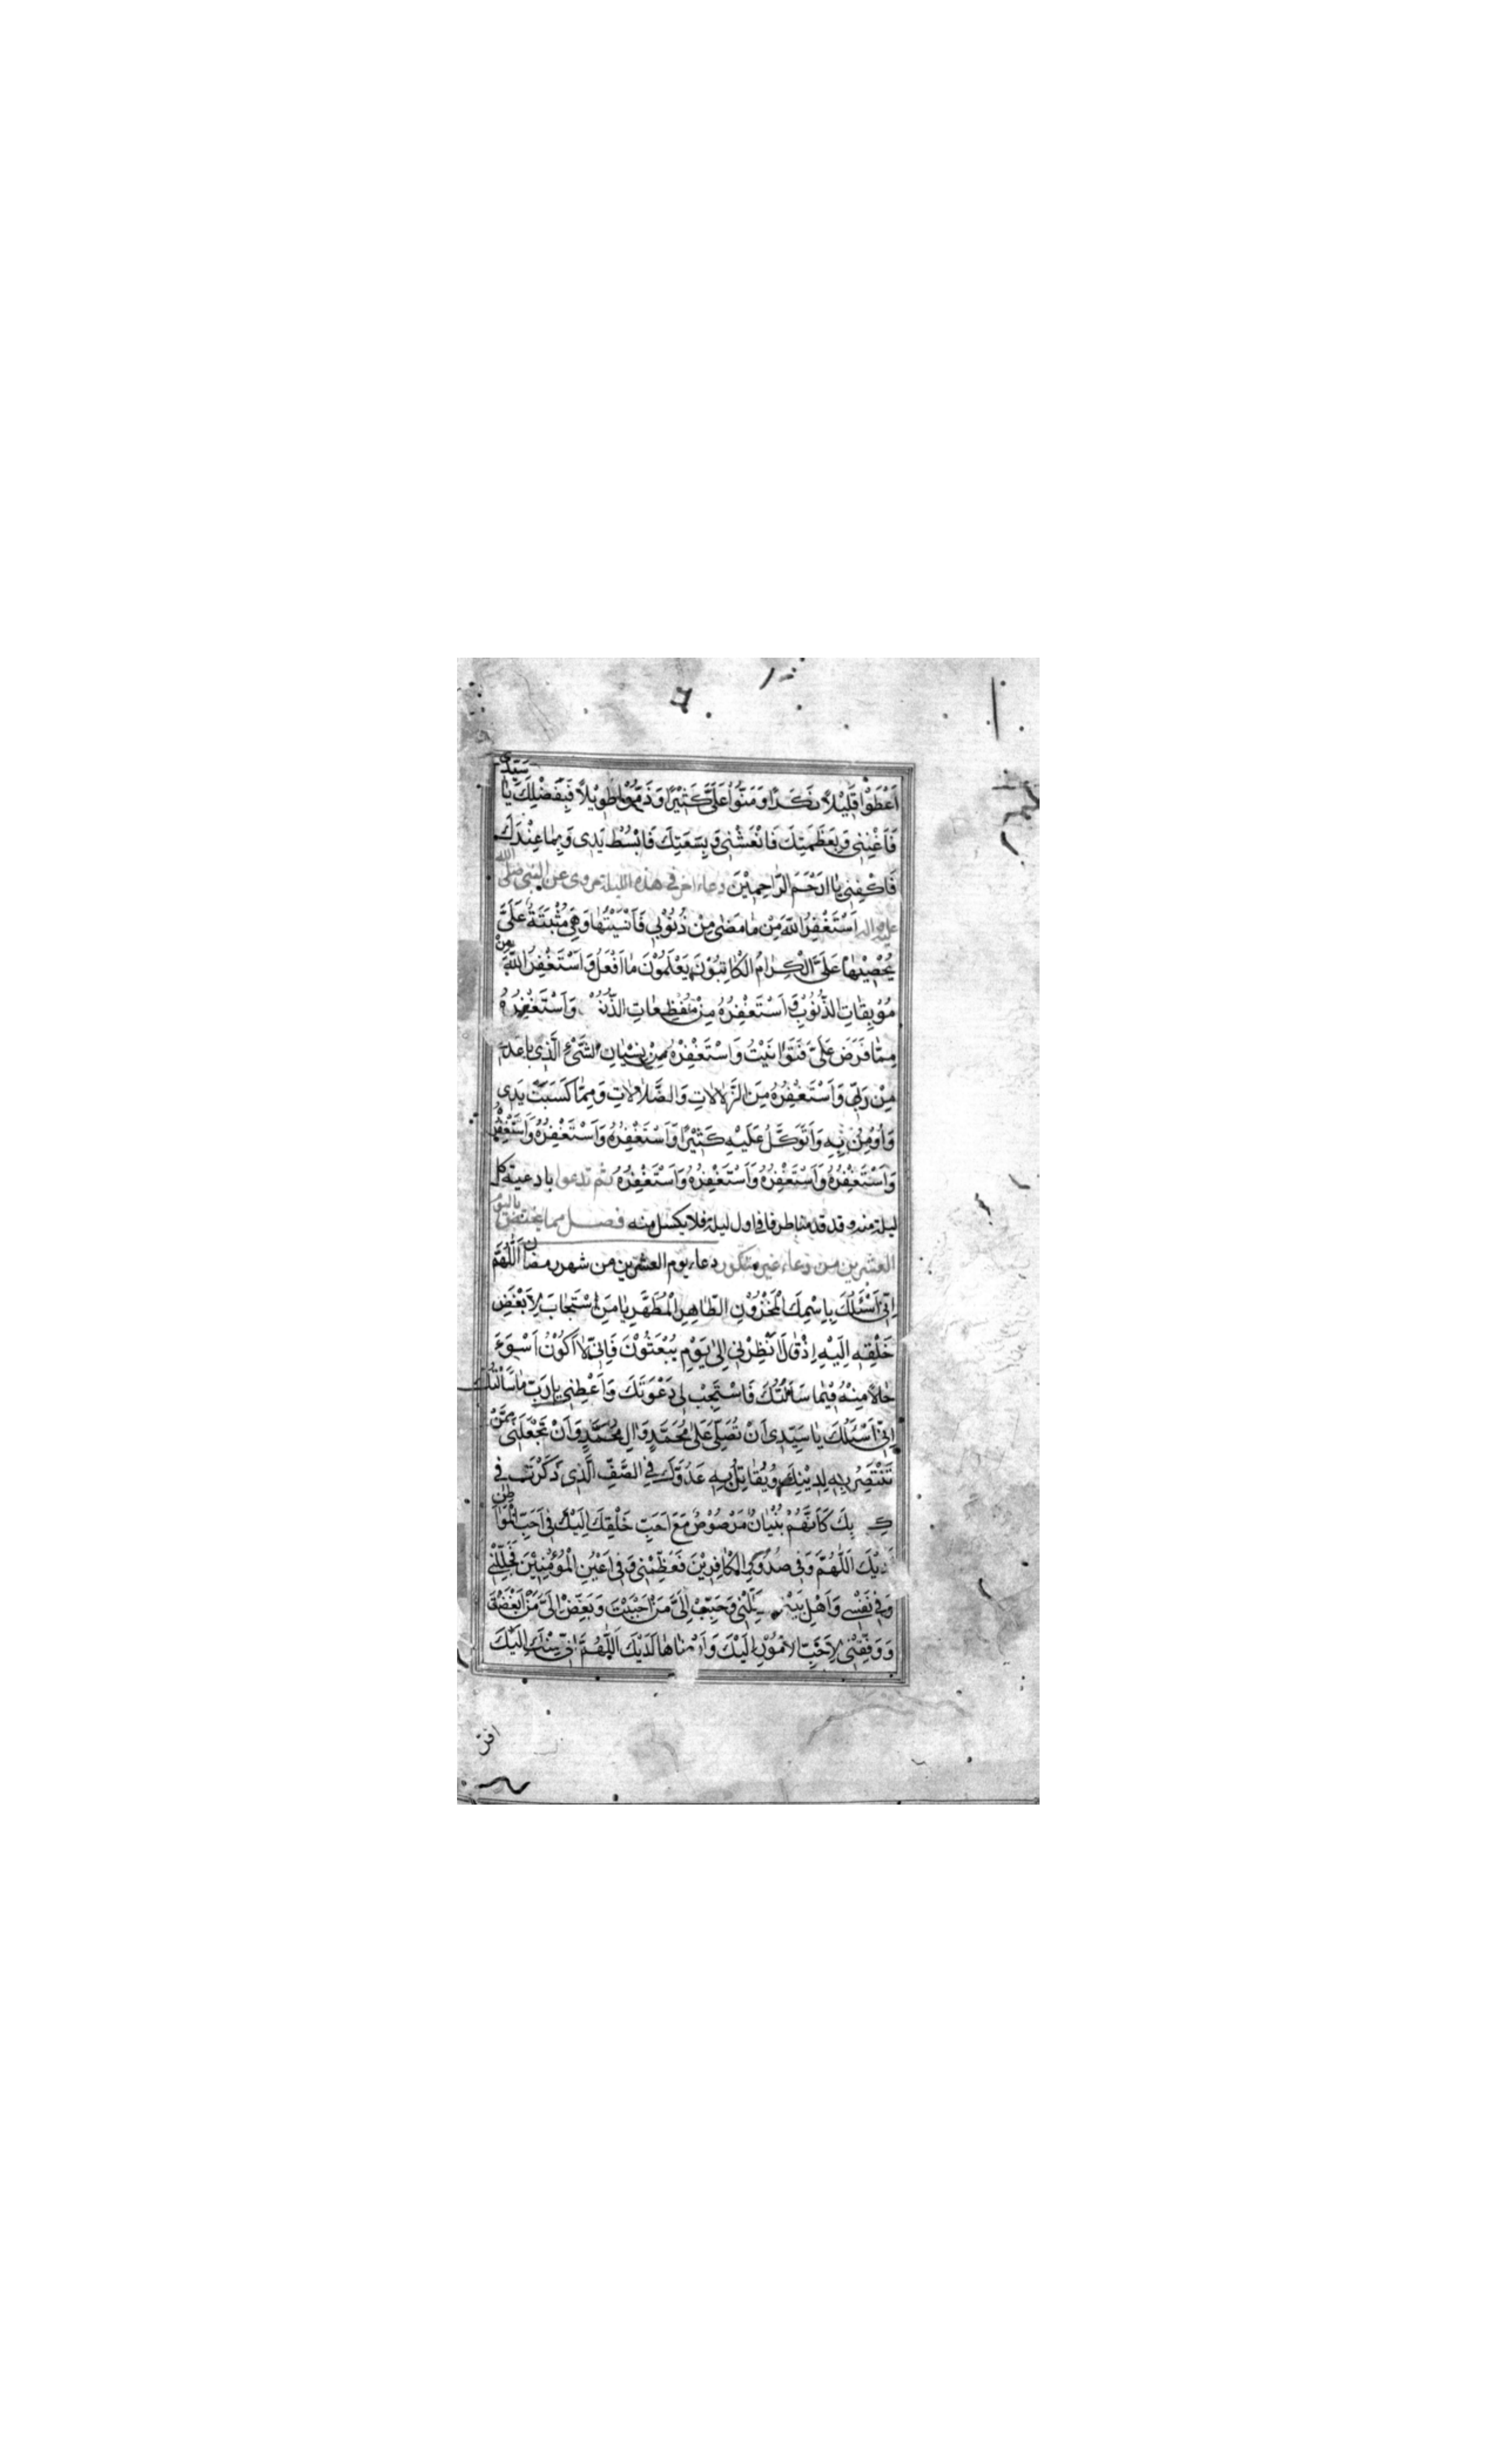 اَعْطَوْا قَلِيْلاً نَكَدًا وَمَنُّوْا عَلَىَّ كَثِيْرًا وَذَمُّوْا طَوِيْلاً فَبِفَضْلِكَ يَا سَيِّدِى
فَاَغْنِنِى وَبِعَظَمَتِكَ فَانْعَشْنِى وَبِسَعَتِكَ فَابْسُطْ يَدِى وَبِمَا عِنْدَكَ
فَاكْفِنِى يَا اَرْحَمَ الرَّاحِمِيْنَ دعاء اخر فى هذه الليلة مروى عن النبى صلى الله
عليه واله اَسْتَغْفِرُ اللّٰهَ مِنْ مَا مَضٰى مِنْ ذُنُوْبِى فَاَنْسَيْتُهَا وَهِىَ مُثْبَتَةٌ عَلَىَّ
يُحْصِيْهَا عَلَىَّ الْكِرَامُ الْكَاتِبُوْنَ يَعْلَمُوْنَ مَا اَفْعَلُ وَاَسْتَغْفِرُ اللّٰهَ مِنْ
مُوْبِقَاتِ الذُّنُوْبِ وَاَسْتَغْفِرُهُ مِنْ مُفْظِعَاتِ الذُّنُ وَاَسْتَغْفِرُهُ
مِمَّا فَرَضَ عَلَىَّ فَتَوَانَيْتُ وَاَسْتَغْفِرُهُ مِنْ نِسْيَانِ الشَّىْءِ الَّذِى بَاعَدَنِى
مِنْ رَبِّى وَاَسْتَغْفِرُهُ مِنَ الزَّلاَّتِ وَالضَّلاَلاَتِ وَمِمَّا كَسَبَتْ يَدِى
وَاُوْمِنُ بِهِ وَاَتَوَكَّلُ عَلَيْهِ كَثِيْرًا وَاَسْتَغْفِرُهُ وَاَسْتَغْفِرُهُ وَاَسْتَغْفِرُهُ
وَاَسْتَغْفِرُهُ وَاَسْتَغْفِرُهُ وَاَسْتَغْفِرُهُ وَاَسْتَغْفِرُهُ ثم تدعوا بادعية كل
ليلة منه وقد قدمنا طرفا فى اول ليلة فلا يكسل منه فصــل مما يختص باليوم
العشرين من دعاء غير متكرر دعاء يوم العشرين من شهر رمضان اَللّٰهُمَّ
اِنِّى اَسْئَلُكَ بِاسْمِكَ الْمَخْزُوْنِ الطَّاهِرِ الْمُطَهَّرِ يَا مَنِ اسْتَجَابَ لِاَبْغَضِ
خَلْقِهِ اِلَيْهِ اِذْ قَالَ اَنْظِرْنِى اِلٰى يَوْمِ يُبْعَثُوْنَ فَاِنِّى لاَ اَكُوْنُ اَسْوَءَ
حَالاً مِنْهُ فِيْمَا سَاَلْتُكَ فَاسْتَجِبْ لِى دَعْوَتَكَ وَاَعْطِنِى يَا رَبِّ مَا سَاَلْتُكَ
اِنِّى اَسْئَلُكَ يَا سَيِّدِى اَنْ تُصَلِّىَ عَلٰى مُحَمَّدٍ وَاٰلِ مُحَمَّدٍ وَاَنْ تَجْعَلَنِى مِمَّنْ
تَنْتَصِرُ بِهِ لِدِيْنِكَ وَيُقَاتِلُ بِهِ عَدُوَّكَ فِى الصَّفِّ الَّذِى ذَكَرْتَ فِى
كِ بِكَ كَاَنَّهُمْ بُنْيَانٌ مَرْصُوْصٌ مَعَ اَحَبِّ خَلْقِكَ اِلَيْكَ فِى اَحَبِّ الْمَوَاطِنِ
لَدَيْكَ اَللّٰهُمَّ وَفِى صُدُوْرِ الْكَافِرِيْنَ فَعَظِّمْنِى وَفِى اَعْيُنِ الْمُؤْمِنِيْنَ فَجَلِّلْنِى
وَفِى نَفْسِى وَاَهْلِ بَيْتِى لِّلْنِى وَحَبِّبْ اِلَىَّ مَنْ اَحْبَبْتَ وَبَغِّضْ اِلَىَّ مَنْ اَبْغَضْتَ
وَوَفِّقْنِى لِاَحَبِّ الاُمُوْرِ اِلَيْكَ وَاَرْضَاهَا لَدَيْكَ اَللّٰهُمَّ اِنِّى مِنْكَ اِلَيْكَ
افرّ